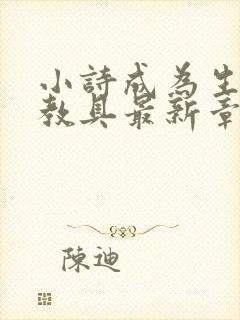 小詩成為生
教具最新章
陳迪